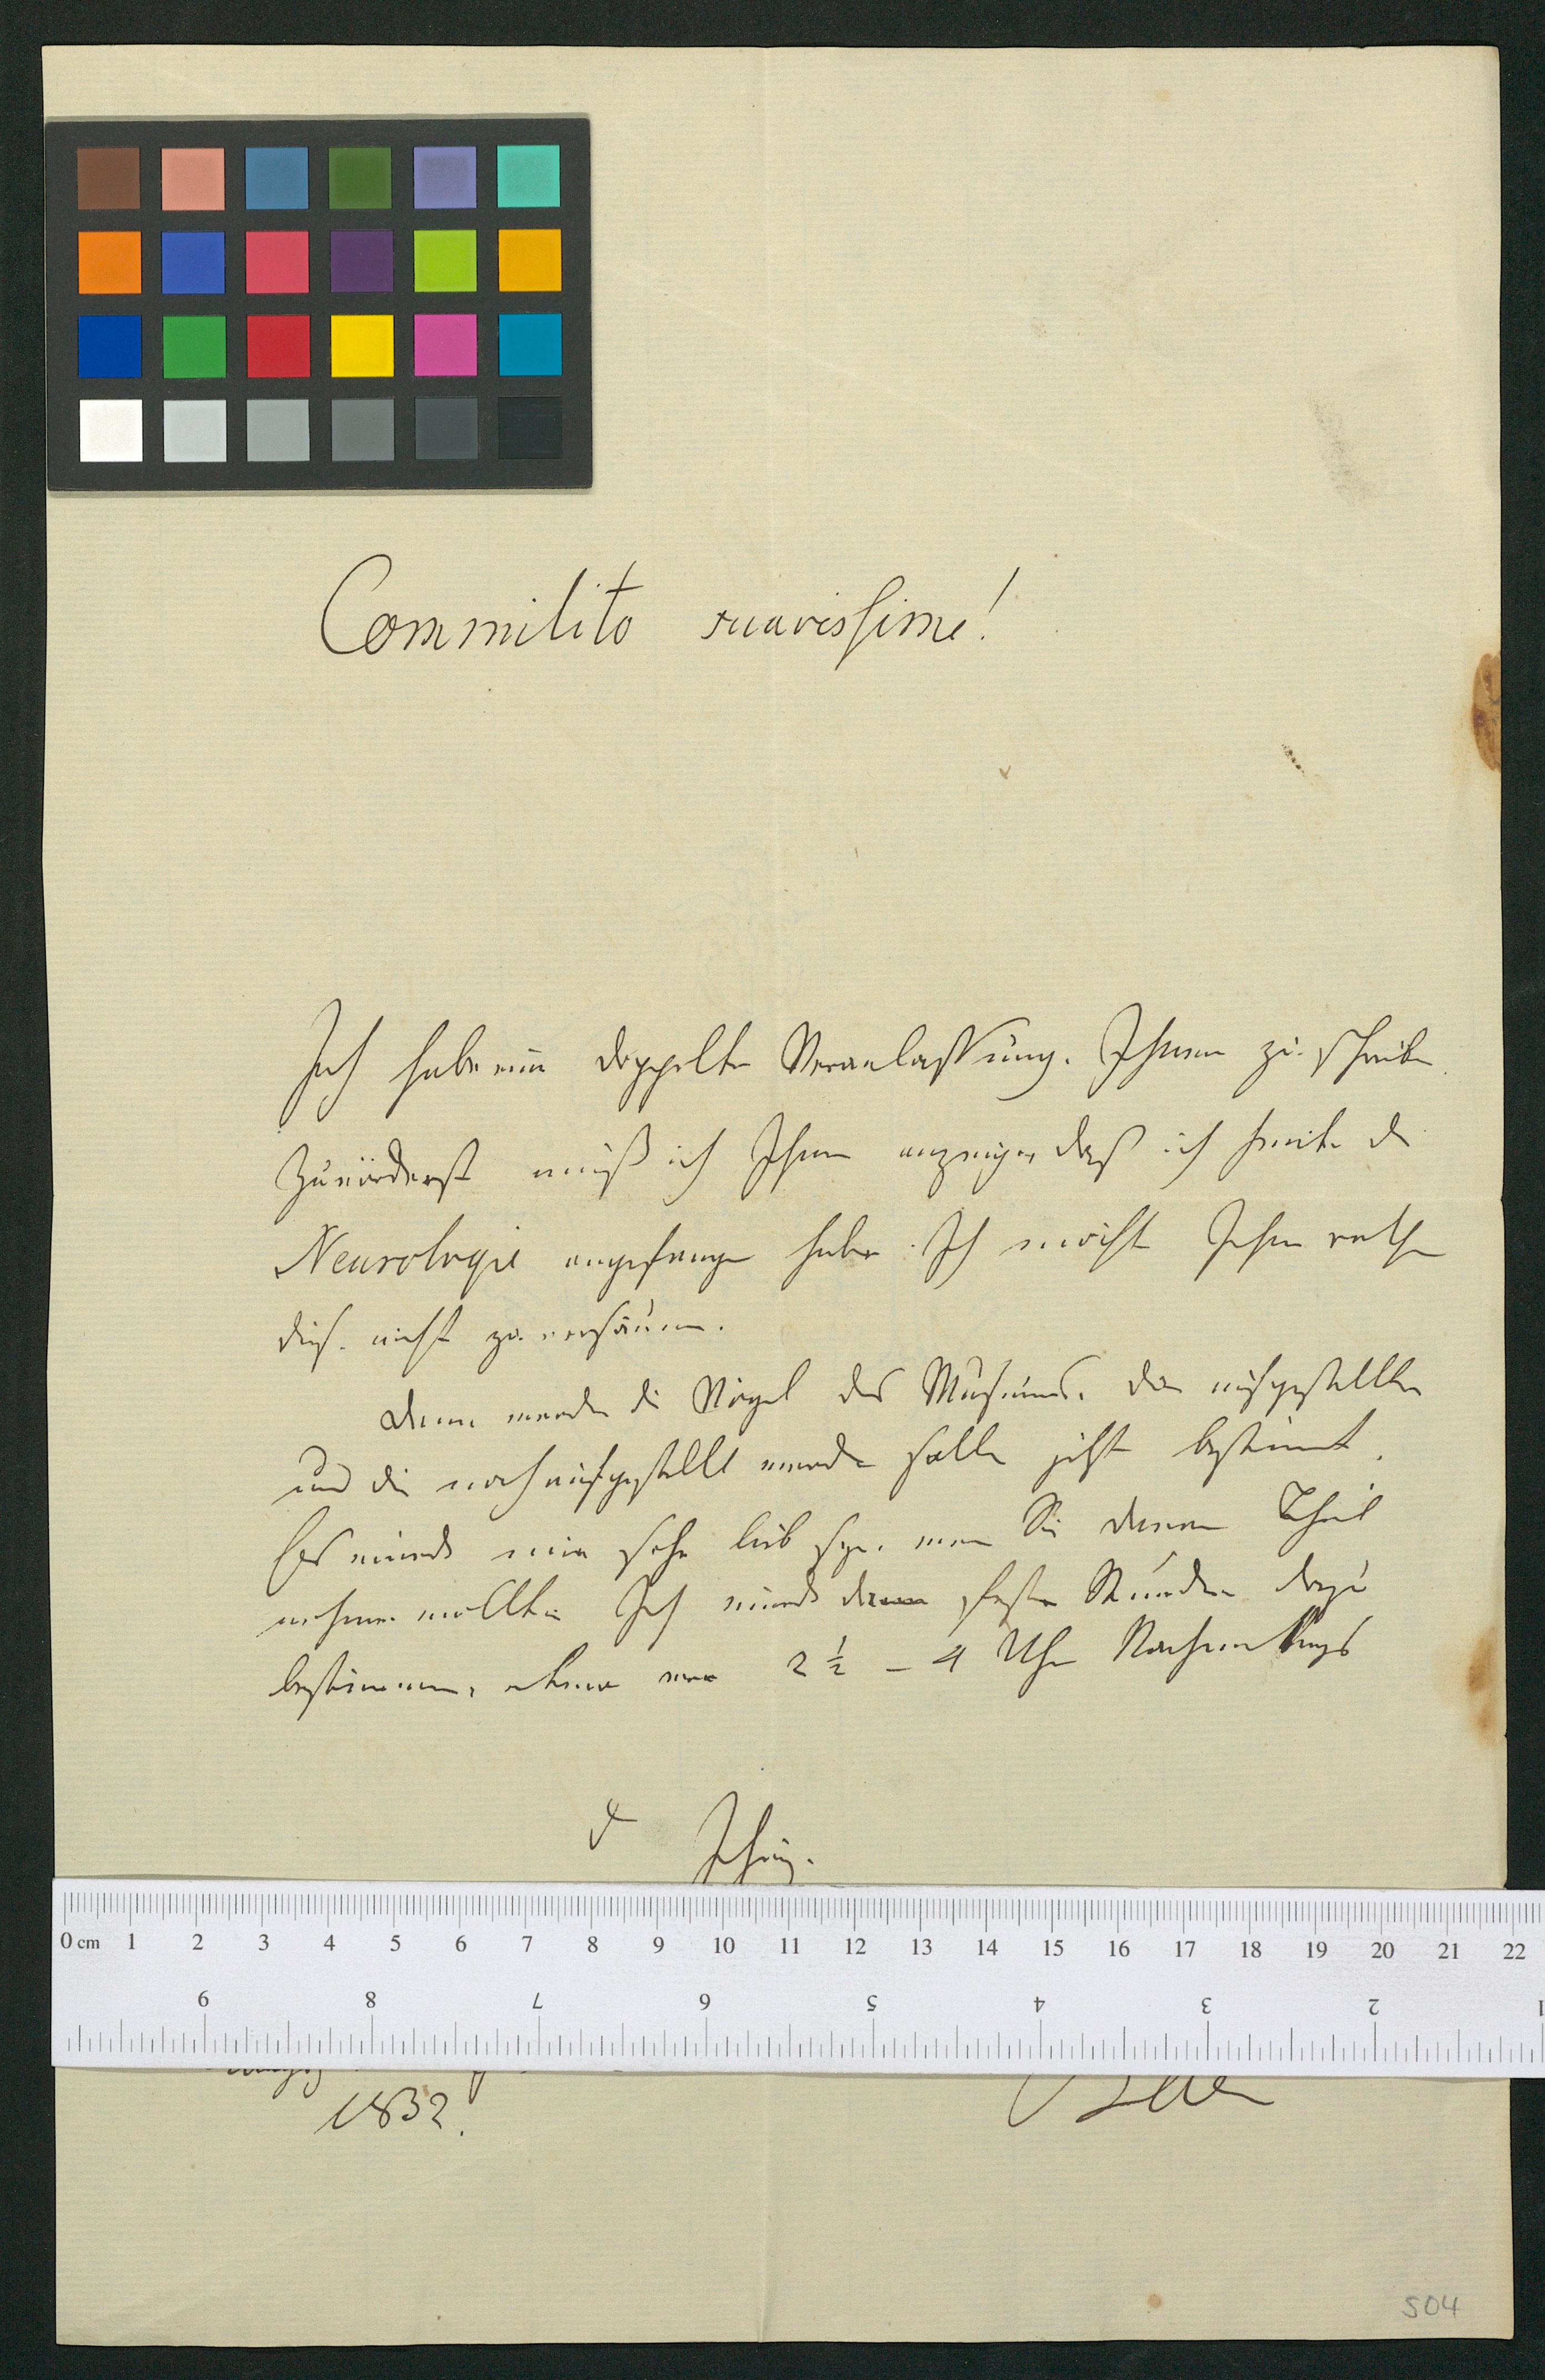 Commilito suavissime!
Ich habe eine doppelte Veranlassung, Ihnen zu schreiben.
Zuvörderst muß ich Ihnen anzeigen, daß ich heute die
Neurologie angefangen habe. Ich möchte Ihnen rathen
dies. nicht zu versäumen.
Dann werden die Vögel des Museums, die aufgestellten
und die noch aufgestellt werden sollen jetzt bestimmt.
Es würde mir sehr lieb seyn, wenn Sie daran Theil
nehmen wollten. Ich würde dann feste Stunden dazu
bestimmen, etwa von 2 ½ – 4 Uhr Nachmittags
d Ihrig.
0 cm 1 2 3 4 5 6 7 8 9 10 11 12 13 14 15 16 17 18 19 20 21 22
9 8 7 6 5 4 3 2 1
Baer
1832.
504